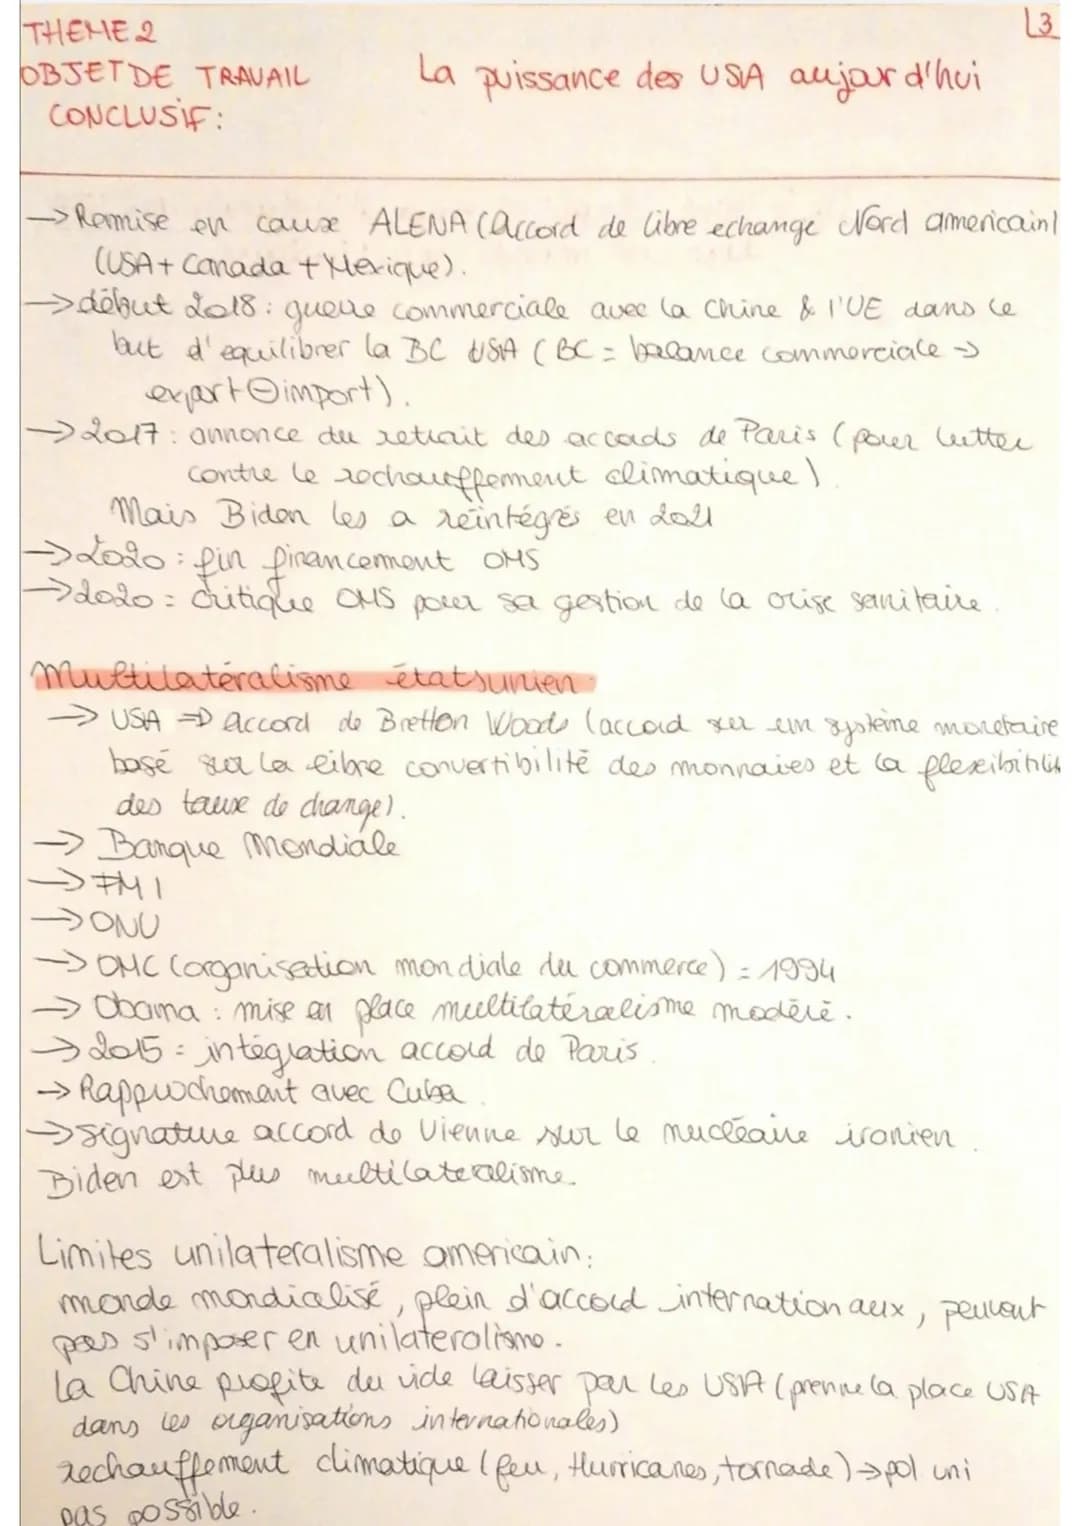 L3
THEME 2
OBJET DE TRAVAIL La puissance des USA aujour d'hui
CONCLUSIF:
-> Remise en cause ALENA (Accord de libre echange Nord americain)
(USA + Canada + Mexique).
-> début 2018 : guerre commerciale avec la Chine & l'UE dans le
but d'equilibrer la BC USA (BC = balance commerciale ->
export ⊖ import).
-> 2017 : annonce du retrait des accords de Paris (pour lutter
contre le rechauffement climatique)
Mais Biden les a réintégrés en 2021
-> 2020 : fin financement OMS
-> 2020 : critique OMS pour sa gestion de la crise sanitaire.
Multilatéralisme étatsunien.
-> USA => accord de Bretton Woods (accord sur un système monétaire
basé sur la libre convertibilité des monnaies et la flexibitilité
des taux de change).
-> Banque Mondiale
-> FMI
-> ONU
-> OMC (organisation mondiale du commerce) = 1994
-> Obama : mise en place multilatéralisme modéré.
-> 2015 = intégration accord de Paris.
-> Rapprochement avec Cuba.
-> signature accord de Vienne sur le nucléaire iranien.
Biden est plus multilateralisme.
Limites unilateralisme americain:
monde mondialisé, plein d'accord internationaux, peuvent
pas s'imposer en unilateralisme.
La Chine profite du vide laisser par les USA (prenne la place USA
dans les organisations internationales)
rechauffement climatique (feu, Hurricanes, tornade) -> pol uni
pas possible.